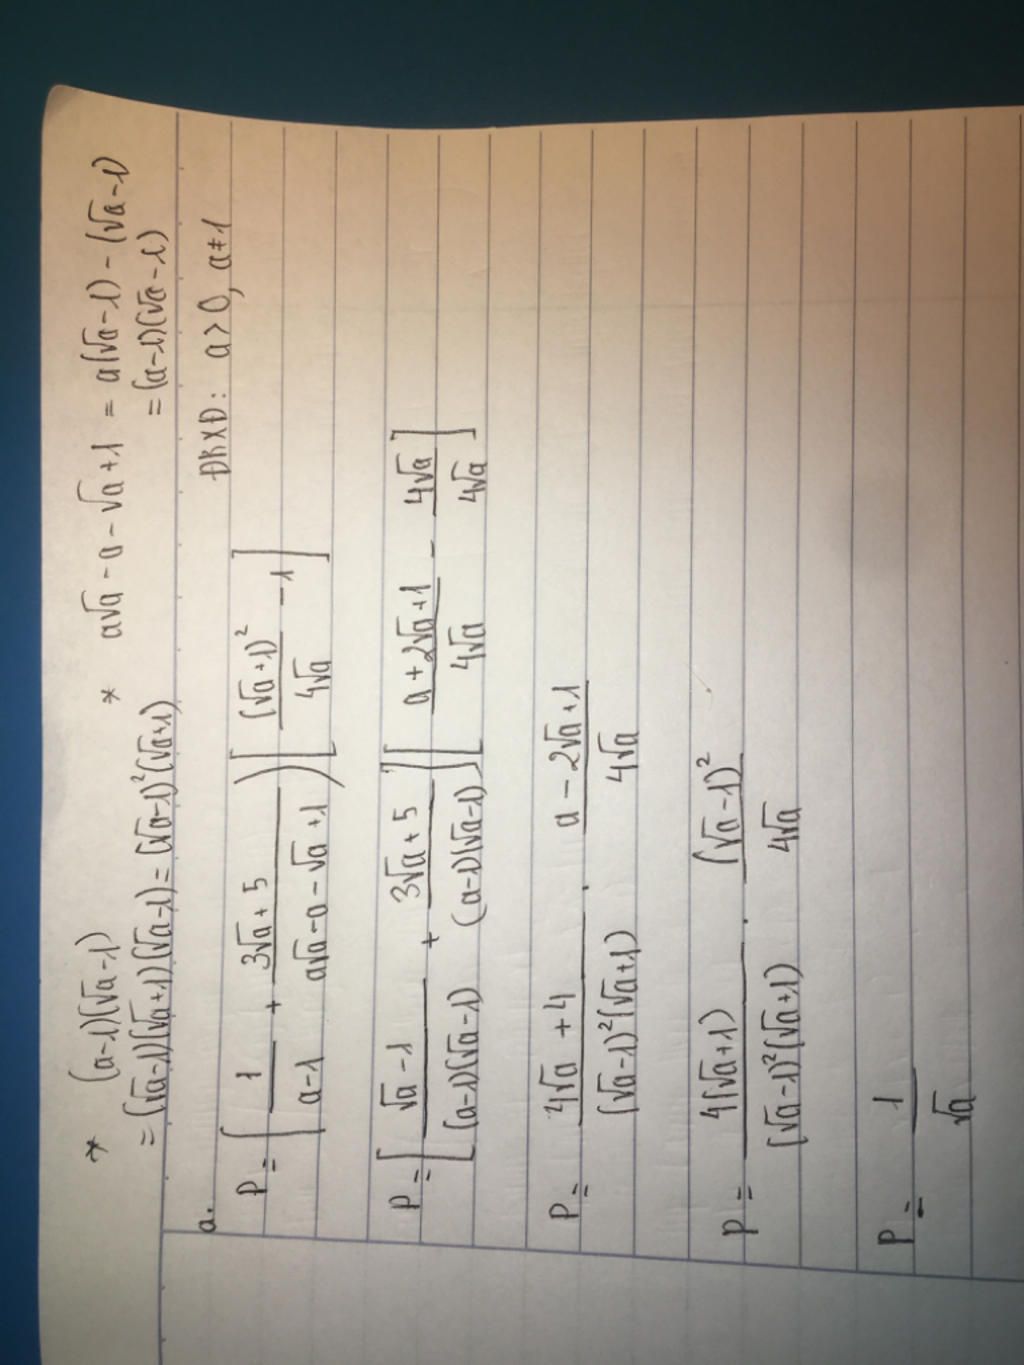 * (a-1)(√a-1)
= (√a-1)(√a+1)(√a-1) = (√a-1)²(√a+1)
* a√a - a - √a + 1 = a(√a-1) - (√a-1)
= (a-1)(√a-1)
a. ĐKXĐ: a > 0, a ≠ 1
P = (1/(a-1) + (3√a+5)/(a√a-a-√a+1)) [(√a+1)²/(4√a) - 1]
P = [(√a-1)/((a-1)(√a-1)) + (3√a+5)/((a-1)(√a-1))] [(a+2√a+1)/(4√a) - 4√a/(4√a)]
P = (4√a+4)/((√a-1)²(√a+1)) · (a-2√a+1)/(4√a)
P = 4(√a+1)/((√a-1)²(√a+1)) · (√a-1)²/(4√a)
P = 1/√a